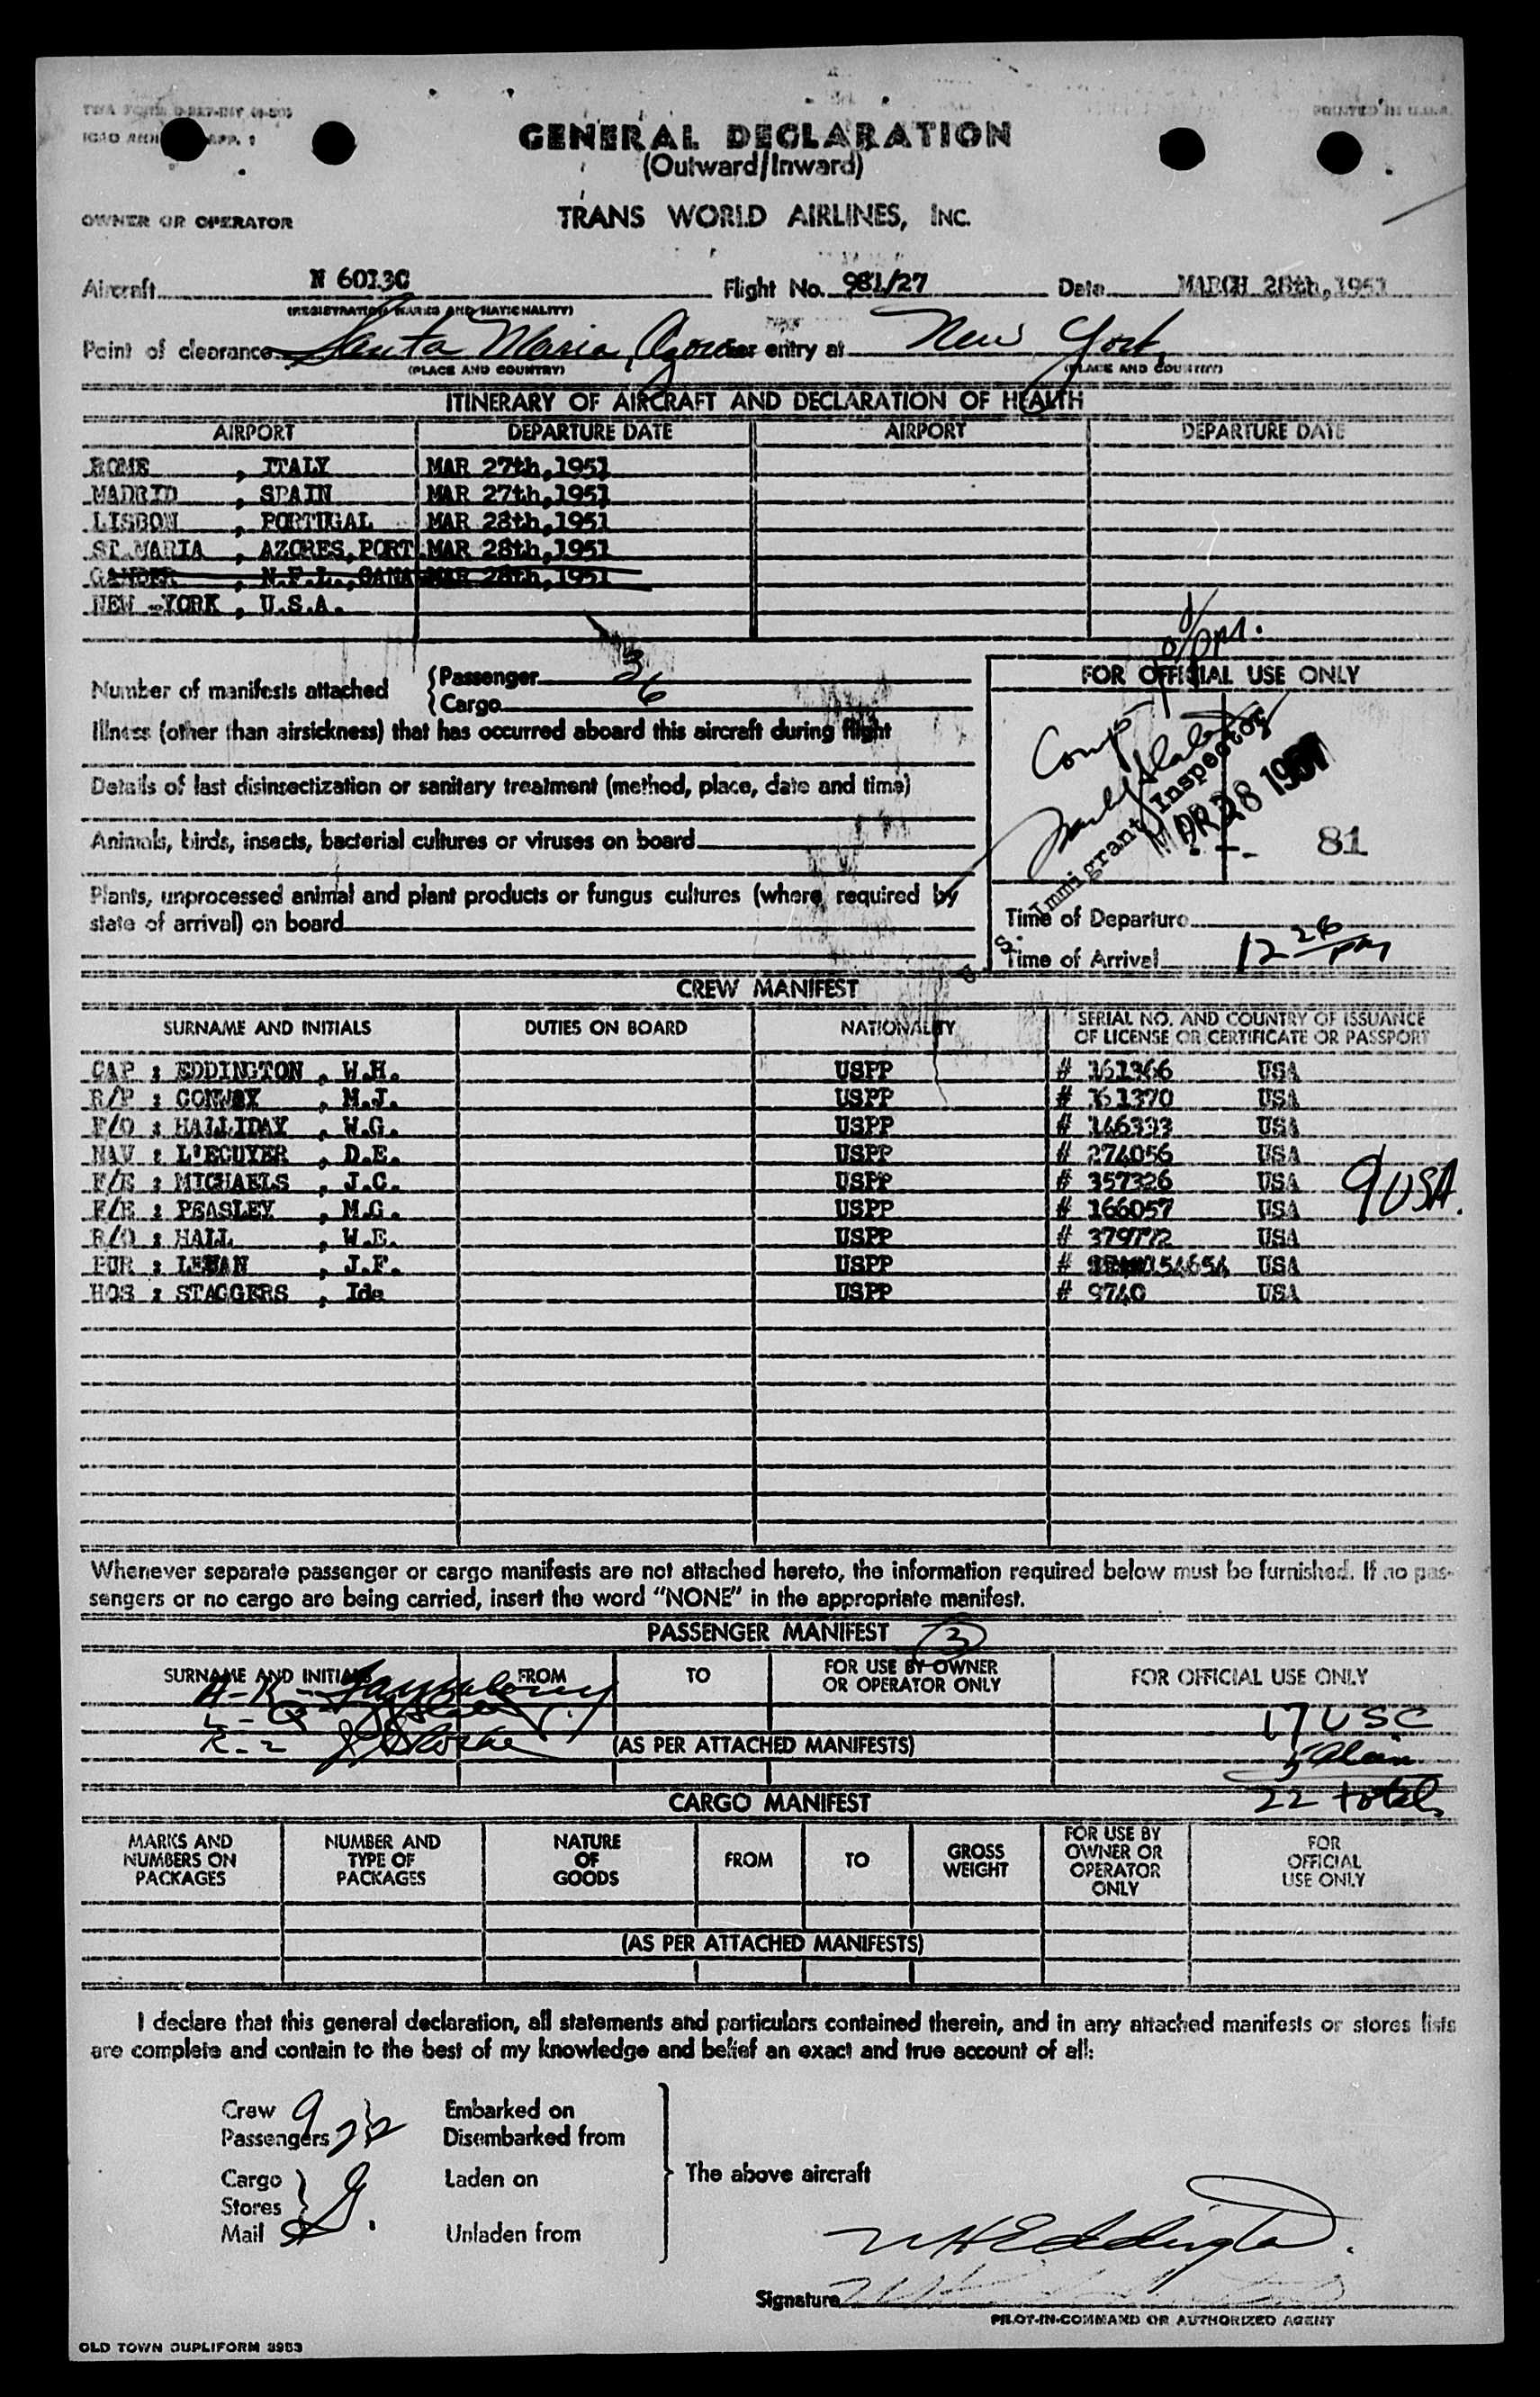 GENERAL DECLARATION
PRINTED IN U.S.A.
(Outward/Inward)
OWNER OR OPERATOR TRANS WORLD AIRLINES, INC.
Aircraft N 6013C Flight No. 981/27 Date MARCH 28th, 1951
(REGISTRATION MARKS AND NATIONALITY)
Point of clearance Santa Maria, Azores For entry at New York,
(PLACE AND COUNTRY) (PLACE AND COUNTRY)
ITINERARY OF AIRCRAFT AND DECLARATION OF HEALTH
AIRPORT DEPARTURE DATE AIRPORT DEPARTURE DATE
ROME , ITALY MAR 27th,1951
MADRID , SPAIN MAR 27th,1951
LISBON , PORTUGAL MAR 28th,1951
ST.MARIA , AZORES,PORT MAR 28th,1951
GANDER , N.F.L.,CANA MAR 28th,1951
NEW -YORK , U.S.A.
Number of manifests attached
Passenger 3
Cargo 6
Illness (other than airsickness) that has occurred aboard this aircraft during flight
Details of last disinsectization or sanitary treatment (method, place, date and time)
Animals, birds, insects, bacterial cultures or viruses on board
Plants, unprocessed animal and plant products or fungus cultures (where required by
state of arrival) on board
FOR OFFICIAL USE ONLY
U. S. Immigrant Inspector
MAR 28 1951
81
Time of Departure
Time of Arrival 12 26 pm
CREW MANIFEST
SURNAME AND INITIALS DUTIES ON BOARD NATIONALITY SERIAL NO. AND COUNTRY OF ISSUANCE
OF LICENSE OR CERTIFICATE OR PASSPORT
CAP : EDDINGTON , W.H. USPP # 161366 USA
R/P : CONWAY , M.J. USPP # 161370 USA
F/O : HALLIDAY , W.G. USPP # 146333 USA
NAV : L'ECUYER , D.E. USPP # 274056 USA
F/E : MICHAELS , J.C. USPP # 357326 USA
F/E : PEASLEY , M.G. USPP # 166057 USA
R/O : HALL , W.E. USPP # 379772 USA
PUR : LEMAN , J.F. USPP # 154654 USA
HOS : STAGGERS , Ida USPP # 9740 USA
9 USA.
Whenever separate passenger or cargo manifests are not attached hereto, the information required below must be furnished. If no pas-
sengers or no cargo are being carried, insert the word "NONE" in the appropriate manifest.
PASSENGER MANIFEST 3
SURNAME AND INITIALS FROM TO FOR USE BY OWNER
OR OPERATOR ONLY FOR OFFICIAL USE ONLY
A-K
L-Q 17 USC
R-Z (AS PER ATTACHED MANIFESTS) 5 Alien
22 total
CARGO MANIFEST
MARKS AND
NUMBERS ON
PACKAGES
NUMBER AND
TYPE OF
PACKAGES
NATURE
OF
GOODS
FROM
TO
GROSS
WEIGHT
FOR USE BY
OWNER OR
OPERATOR
ONLY
FOR
OFFICIAL
USE ONLY
(AS PER ATTACHED MANIFESTS)
I declare that this general declaration, all statements and particulars contained therein, and in any attached manifests or stores lists
are complete and contain to the best of my knowledge and belief an exact and true account of all:
Crew 9 Embarked on
Passengers 22 Disembarked from
Cargo Laden on The above aircraft
Stores
Mail Unladen from
WH Eddington.
Signature
PILOT-IN-COMMAND OR AUTHORIZED AGENT
OLD TOWN DUPLIFORM 3953